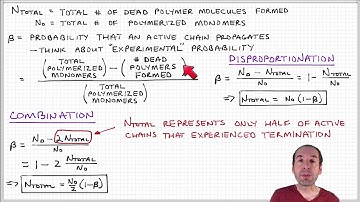 NTOTAL = TOTAL # OF DEAD POLYMER MOLECULES FORMED
No = TOTAL # OF POLYMERIZED MONOMERS
β = PROBABILITY THAT AN ACTIVE CHAIN PROPAGATES
- THINK ABOUT "EXPERIMENTAL" PROBABILITY
= (TOTAL POLYMERIZED MONOMERS) - (# DEAD POLYMERS FORMED)
(TOTAL POLYMERIZED MONOMERS)
DISPROPORTIONATION
β = No - NTOTAL / No = 1 - NTOTAL / No
⇒ NTOTAL = No (1-β)
COMBINATION
β = No - 2 NTOTAL / No
= 1 - 2 NTOTAL / No
⇒ NTOTAL = No/2 (1-β)
NTOTAL REPRESENTS ONLY HALF OF ACTIVE
CHAINS THAT EXPERIENCED TERMINATION